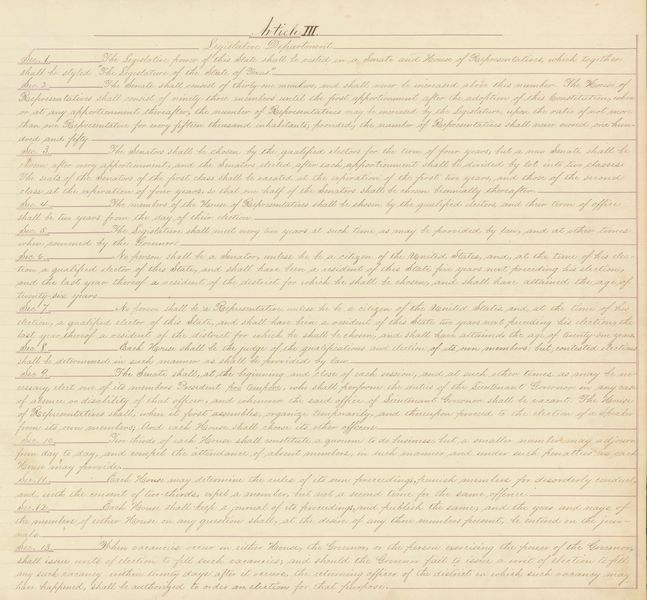 Article III
Legislative Department
Sec. 1. The Legislative power of this State shall be vested in a Senate and House of Representatives, which together
shall be styled "The Legislature of the State of Texas"
Sec. 2. The Senate shall consist of thirty-one members, and shall never be increased above this number. The House of
Representatives shall consist of ninety three members until the first apportionment after the adoption of this Constitution, when
or at any apportionment thereafter, the number of Representatives may be increased by the Legislature, upon the ratio of not more
than one Representative for every fifteen thousand inhabitants; provided, the number of Representatives shall never exceed one hun-
dred and fifty
Sec. 3. The Senators shall be chosen by the qualified electors for the term of four years, but a new Senate shall be
chosen after every apportionment, and the Senators elected after each apportionment shall be divided by lot into two classes
The seats of the Senators of the first class shall be vacated at the expiration of the first two years, and those of the second
class at the expiration of four years, so that one half of the Senators shall be chosen biennially thereafter
Sec. 4. The members of the House of Representatives shall be chosen by the qualified electors, and their term of office
shall be two years from the day of their election
Sec. 5. The Legislature shall meet every two years at such time as may be provided by law, and at other times
when convened by the Governor
Sec. 6. No person shall be a Senator, unless he be a citizen of the United States, and, at the time of his elec-
tion a qualified elector of this State, and shall have been a resident of this State five years next preceding his election,
and the last year thereof a resident of the district for which he shall be chosen, and shall have attained the age of
twenty-six years
Sec. 7. No person shall be a Representative unless he be a citizen of the United States and, at the time of his
election, a qualified elector of this State, and shall have been a resident of this State two years next preceding his election, the
last year thereof a resident of the district for which he shall be chosen, and shall have attained the age of twenty-one years
Sec. 8. Each House shall be the judge of the qualifications and election of its own members; but contested elections
shall be determined in such manner as shall be provided by law
Sec. 9. The Senate shall, at the beginning and close of each session, and at such other times as may be ne-
cessary elect one of its members President pro tempore, who shall perform the duties of the Lieutenant Governor in any case
of absence or disability of that officer, and whenever the said office of Lieutenant Governor shall be vacant. The House
of Representatives shall, when it first assembles, organize temporarily, and thereupon proceed to the election of a Speaker
from its own members; And each House shall choose its other officers
Sec. 10. Two thirds of each House shall constitute a quorum to do business but a smaller number may adjourn
from day to day, and compel the attendance of absent members, in such manner and under such penalties as each
House may provide
Sec. 11. Each House may determine the rules of its own proceedings, punish members for disorderly conduct,
and with the consent of two-thirds, expel a member, but not a second time for the same offence
Sec. 12. Each House shall keep a journal of its proceedings, and publish the same; and the yeas and nays of
the members of either House on any question shall, at the desire of any three members present, be entered on the jour-
nals
Sec. 13. When vacancies occur in either House, the Governor, or the person exercising the power of the Governor,
shall issue writs of election to fill such vacancies; and should the Governor fail to issue a writ of election to fill
any such vacancy within twenty days after it occurs, the returning officer of the district in which such vacancy may
have happened, shall be authorized to order an election for that purpose.